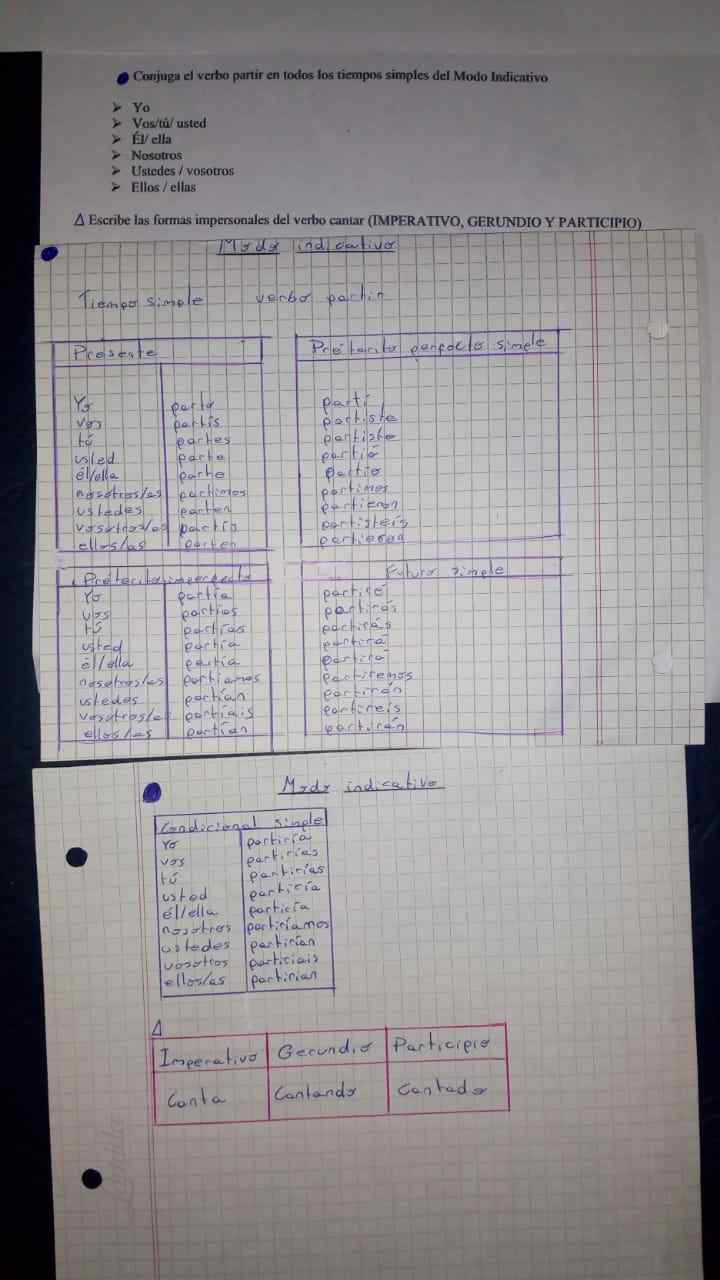 Conjuga el verbo partir en todos los tiempos simples del Modo Indicativo
Yo
Vos/tú/ usted
Él/ ella
Nosotros
Ustedes / vosotros
Ellos / ellas
Δ Escribe las formas impersonales del verbo cantar (IMPERATIVO, GERUNDIO Y PARTICIPIO)
Modo indicativo
Tiempo simple verbo partir
Presente
Yo parto
vos partís
tú partes
usted parte
él/ella parte
nosotros/as partimos
ustedes parten
vosotros/as partís
ellos/as parten
Prétecito perfecto simple
partí
partiste
partiste
partio
partio
partimos
partieron
partisteis
partieron
Prétecito imperfecto
Yo partía
vos partías
tú partías
usted partía
él/ella partía
nosotros/as partiamos
ustedes partían
vosotros/as partíais
ellos/as partían
Futuro simple
partiré
partirás
partirás
partirá
partirá
partiremos
partirán
partireis
partirán
Modo indicativo
Condicional simple
Yo partiría
vos partirías
tú partirías
usted partiría
él/ella partiría
nosotros partiríamos
ustedes partirían
vosotros partiriais
ellos/as partirian
Δ
Imperativo Gerundio Participio
Canta Cantando Cantado